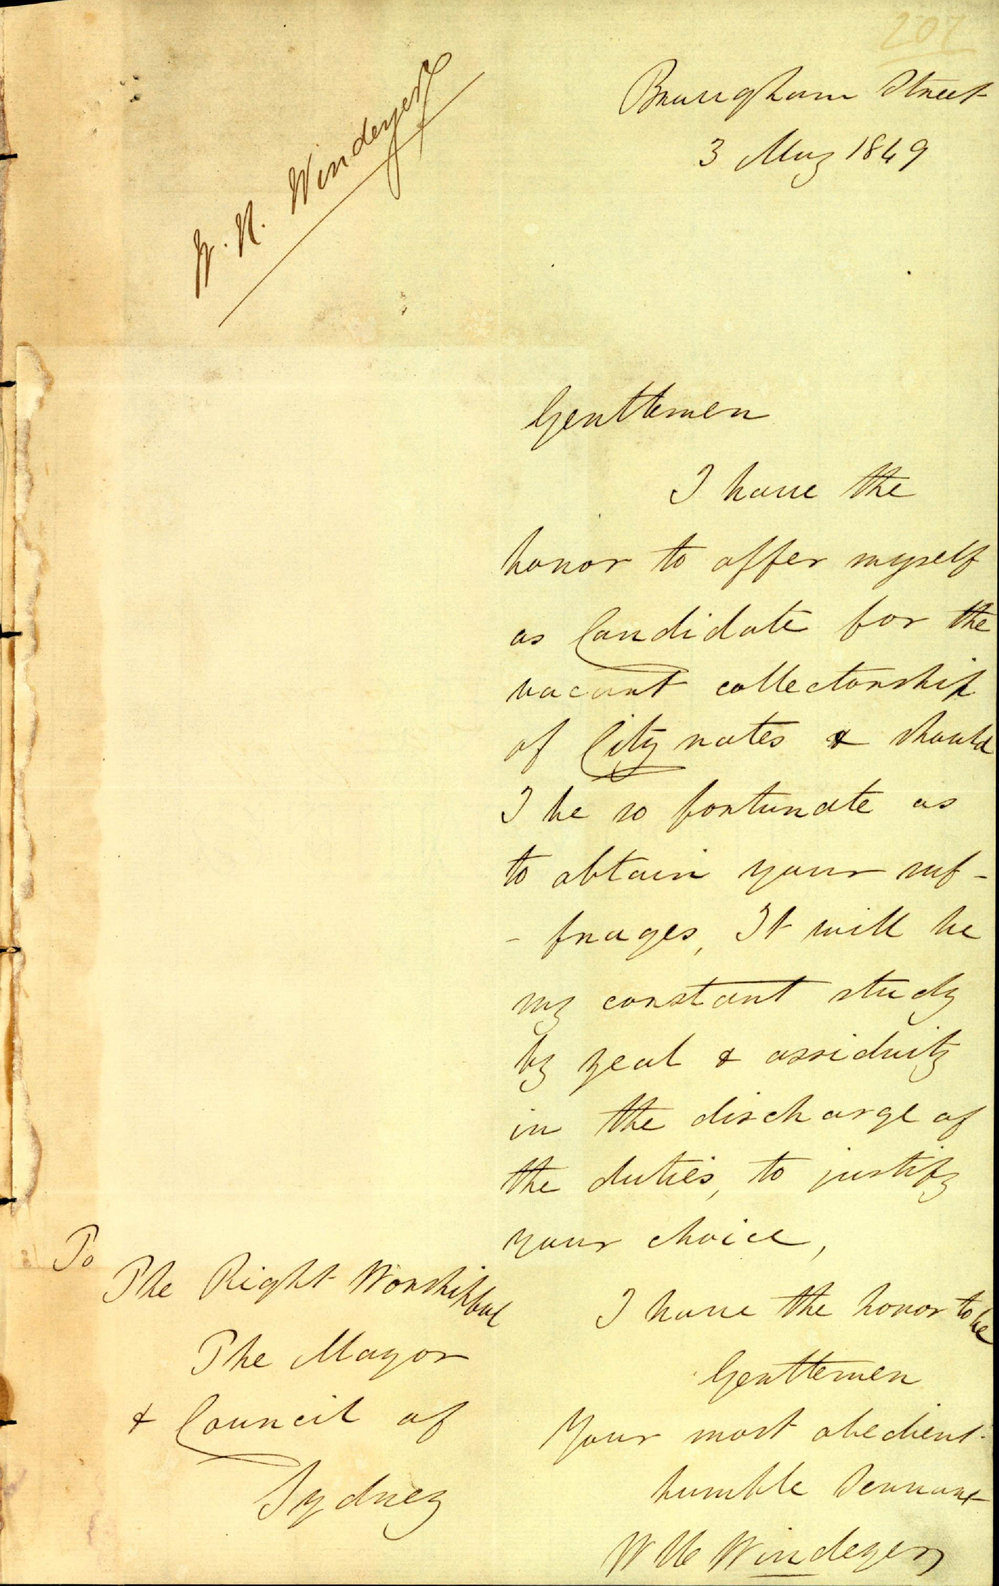 207
W. H. Windeyer
Brougham Street
3 May 1849
Gentlemen
I have the
honor to offer myself
as Candidate for the
vacant collectorship
of City rates & should
I be so fortunate as
to obtain your suf-
- frages, It will be
my constant study
by zeal & assiduity
in the discharge of
the duties, to justify
your choice,
I have the honor to be
Gentlemen
Your most obedient
humble Servant
W H Windeyer
To
The Right Worshipful
The Mayor
& Council of
Sydney